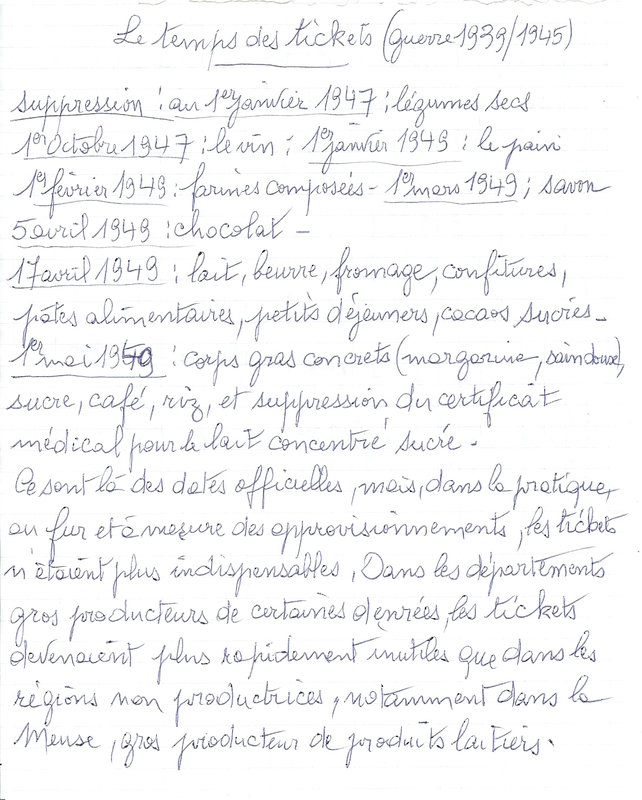 Le temps des tickets (guerre 1939/1945)
suppression : au 1er janvier 1947 : légumes secs
1er Octobre 1947 : le vin ; 1er janvier 1949 : le pain
19 février 1949 : farines composées - 1er mars 1949 ; savon
5 avril 1949 : chocolat -
17 avril 1949 : lait, beurre, fromage, confitures,
pâtes alimentaires, petits déjeuners, cacaos sucrés -
1er mai 1949 : corps gras concrets (margarine, saindoux),
sucre, café, riz, et suppression du certificat
médical pour le lait concentré sucré.
Ce sont là des dates officielles, mais, dans la pratique,
au fur et à mesure des approvisionnements, les tickets
n'étaient plus indispensables. Dans les départements
gros producteurs de certaines denrées, les tickets
devenaient plus rapidement inutiles que dans les
régions non productrices, notamment dans la
Meuse, gros producteur de produits laitiers.